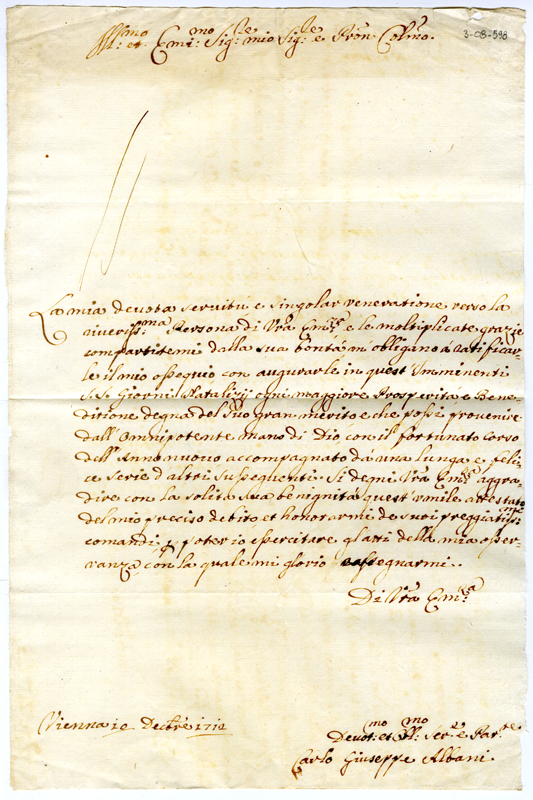 3-08-598
Ill:mo et Emi:mo Sig:re mio Sig:re e Pron Colmo.
La mia devota seruitù e singolar veneratione verso la
riueriss:ma Persona di Vra Em:za e le moltiplicate grazie
compartitemi dalla sua bontà m'obligano à ratificar-
le il mio ossequio con augurarle in quest'imminenti
SS. Giorni Natalizij ogni maggiore Prosperità e Bene-
ditione degna del suo gran merito e che possi prouenire
dall'Omnipotente mano di Dio con il fortunato corso
dell'Anno nuouo accompagnato dà una lunga e feli-
ce serie d'altri sussequenti. Si degni Vra Em:za aggra-
dire con la solita sua benignità quest'vmile attestato
del mio preciso debito et honorarmi de suoi preggiatis:mi
comandi, p poter io essercitare gl'atti della mia osser-
uanza, con la quale mi glorio rassegnarmi..
Di Vra Em:za
Vienna 10 Decbre 1712
Deuot:mo et Obl:mo Ser:re e Par:te
Carlo Giuseppe Albani.